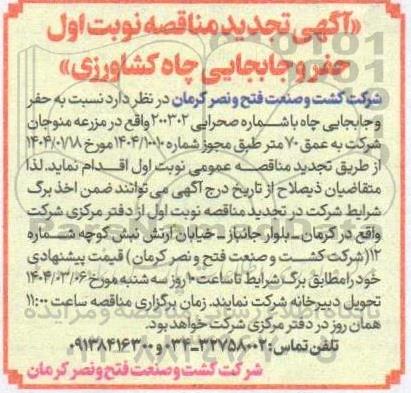 «آگهی تجدید مناقصه نوبت اول
حفر و جابجایی چاه کشاورزی»
شرکت کشت و صنعت فتح و نصر کرمان در نظر دارد نسبت به حفر
و جابجایی چاه با شماره صحرایی ۲۰۰۳۰۲ واقع در مزرعه منوجان
شرکت به عمق ۷۰ متر طبق مجوز شماره ۱۴۰۴/۱۰۰۱۰ مورخ ۱۴۰۴/۰۱/۱۸
از طریق تجدید مناقصه عمومی نوبت اول اقدام نماید. لذا
متقاضیان ذیصلاح از تاریخ درج آگهی می توانند ضمن اخذ برگ
شرایط شرکت در تجدید مناقصه نوبت اول از دفتر مرکزی شرکت
واقع در کرمان - بلوار جانباز - خیابان ارتش نبش کوچه شماره
۱۲ (شرکت کشت و صنعت فتح و نصر کرمان) قیمت پیشنهادی
خود را مطابق برگ شرایط تا ساعت ۱۰ روز سه شنبه مورخ ۱۴۰۴/۰۳/۰۶
تحویل دبیرخانه شرکت نمایند. زمان برگزاری مناقصه ساعت ۱۱:۰۰
همان روز در دفتر مرکزی شرکت خواهد بود.
تلفن تماس: ۳۲۷۵۸۰۰۲-۰۳۴ و ۰۹۱۳۸۴۱۶۳۰۰
شرکت کشت و صنعت فتح و نصر کرمان